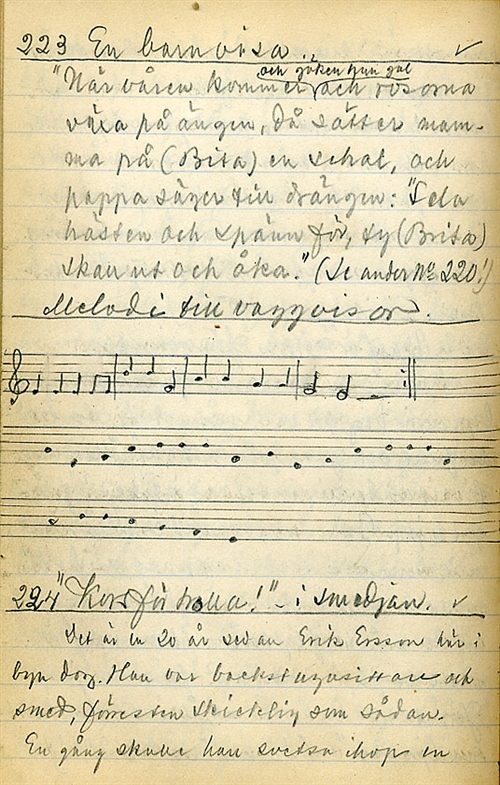 223 En barnvisa.
och göken hun gal
"När våren kommer och rosorna
växa på ängen, då sätter mam-
ma på (Brita) en schal, och
pappa säger till drängen: "Sela
hästen och spänn för, ty (Brita)
skall ut och åka." (Se under No 220!)
Melodi till vaggvisor.
224 "Kors för holla!" - i smedjan.
Det är en 20 år sedan Erik Ersson här i
byn dog. Han var backstugusittare och
smed, förresten skicklig som sådan.
En gång skulle han svetsa ihop en